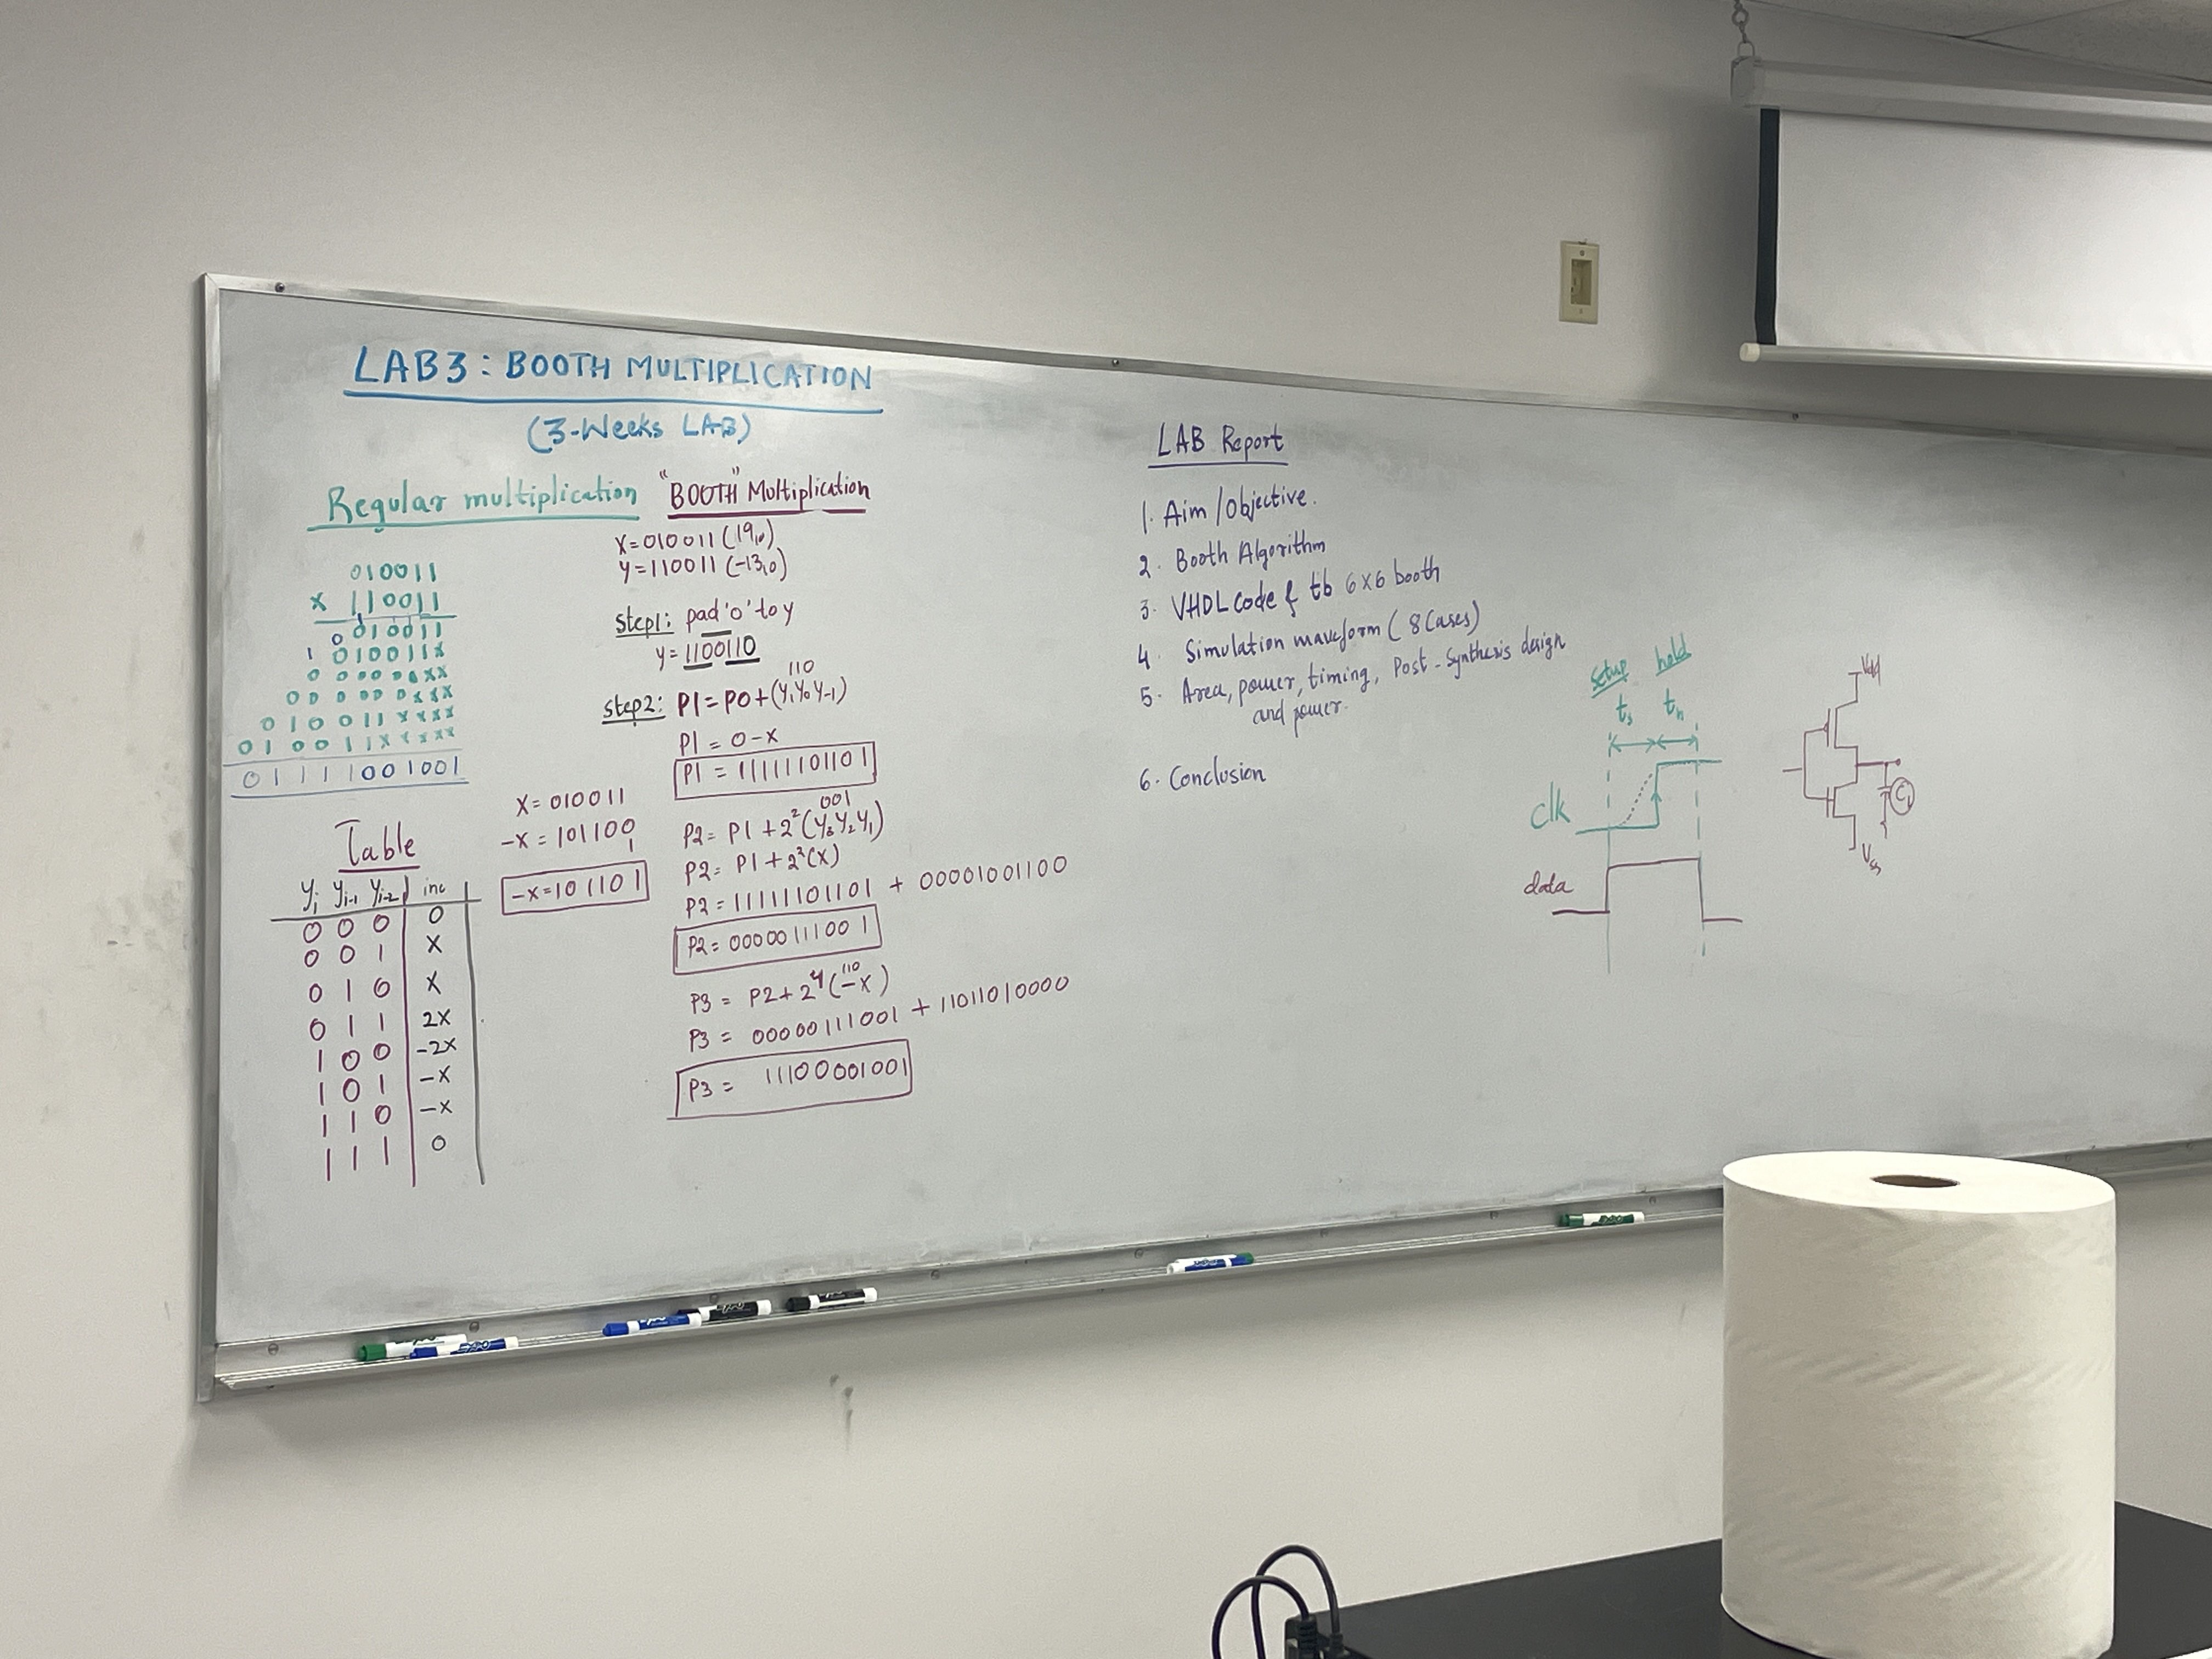 LAB3: BOOTH MULTIPLICATION
(3-Weeks LAB)
Regular multiplication
010011
X 110011
010011
0
1 010011x
0 0000xx
00 00 0xxx
0 1 0 0 11 xxxx
0 1 00 11xxxxx
0 1 1 1 1 001001
Table
yi yi-1 yi-2 inc
0 0 0 0
0 0 1 X
0 1 0 X
0 1 1 2X
1 0 0 -2X
1 0 1 -X
1 1 0 -X
1 1 1 0
X= 010011
-X = 101100
1
-X=101101
"BOOTH" Multiplication
X=010011 (19₁₀)
y=110011 (-13₁₀)
Step1: pad '0' to y
y= 1100110
110
Step2: P1= P0+(y₁y₀y-1)
P1 = 0-X
P1 = 11111101101
001
P2= P1 +2²(y₃y₂y₁)
P2= P1 +2²(X)
P2= 11111101101 + 00001001100
P2= 00000111001
110
P3 = P2+2⁴(-X)
P3 = 00000111001 + 11011010000
P3 = 11100001001
LAB Report
1. Aim/Objective.
2. Booth Algorithm
3. VHDL Code & tb 6x6 booth
4. Simulation waveform (8 Cases)
5. Area, power, timing, Post-Synthesis design
and power.
6. Conclusion
Setup hold
ts th
clk
data
Vdd
CL
Vss